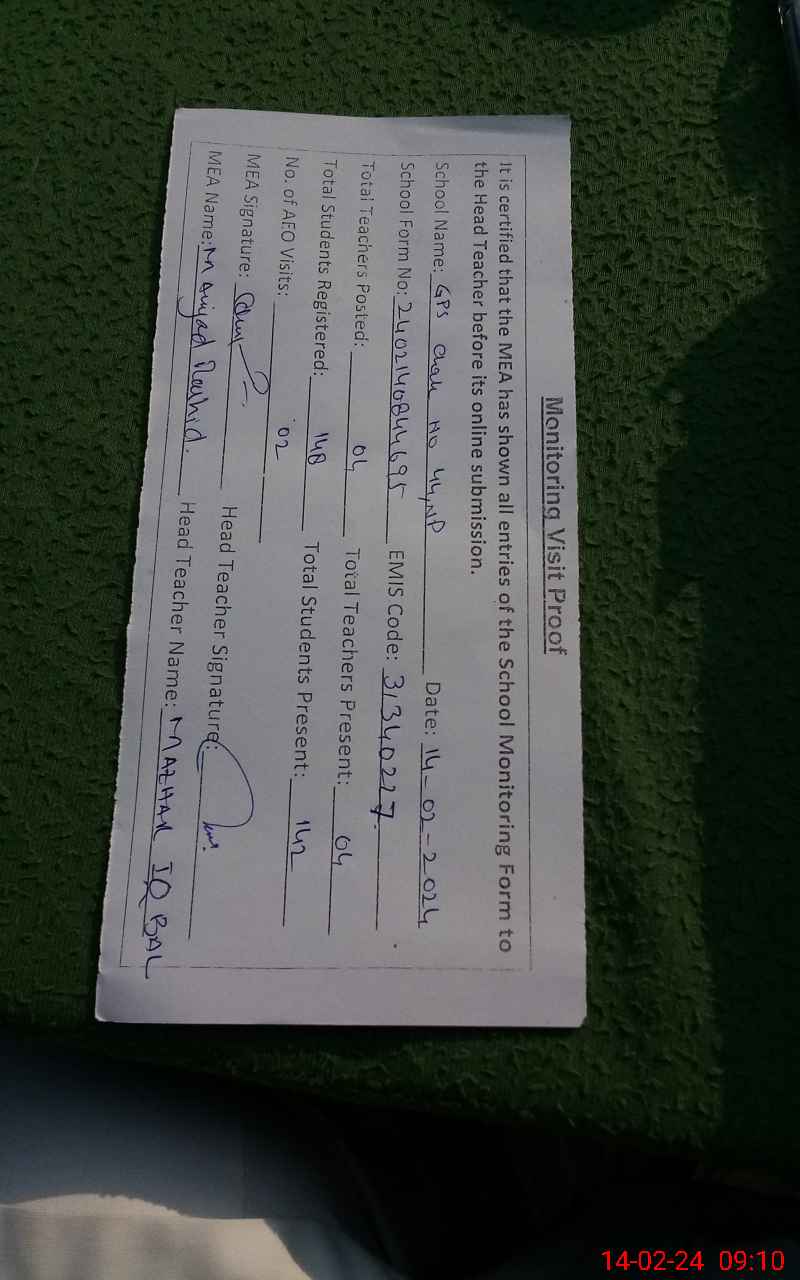 Monitoring Visit Proof
It is certified that the MEA has shown all entries of the School Monitoring Form to
the Head Teacher before its online submission.
School Name: GPS Chak No 44/NP Date: 14-02-2024
School Form No: 2402140844695 EMIS Code: 31340227
Total Teachers Posted: 04 Total Teachers Present: 04
Total Students Registered: 148 Total Students Present: 142
No. of AEO Visits: 02
MEA Signature: Head Teacher Signature:
MEA Name: M Rashid. Head Teacher Name: MAZHAR IQBAL
14-02-24 09:10